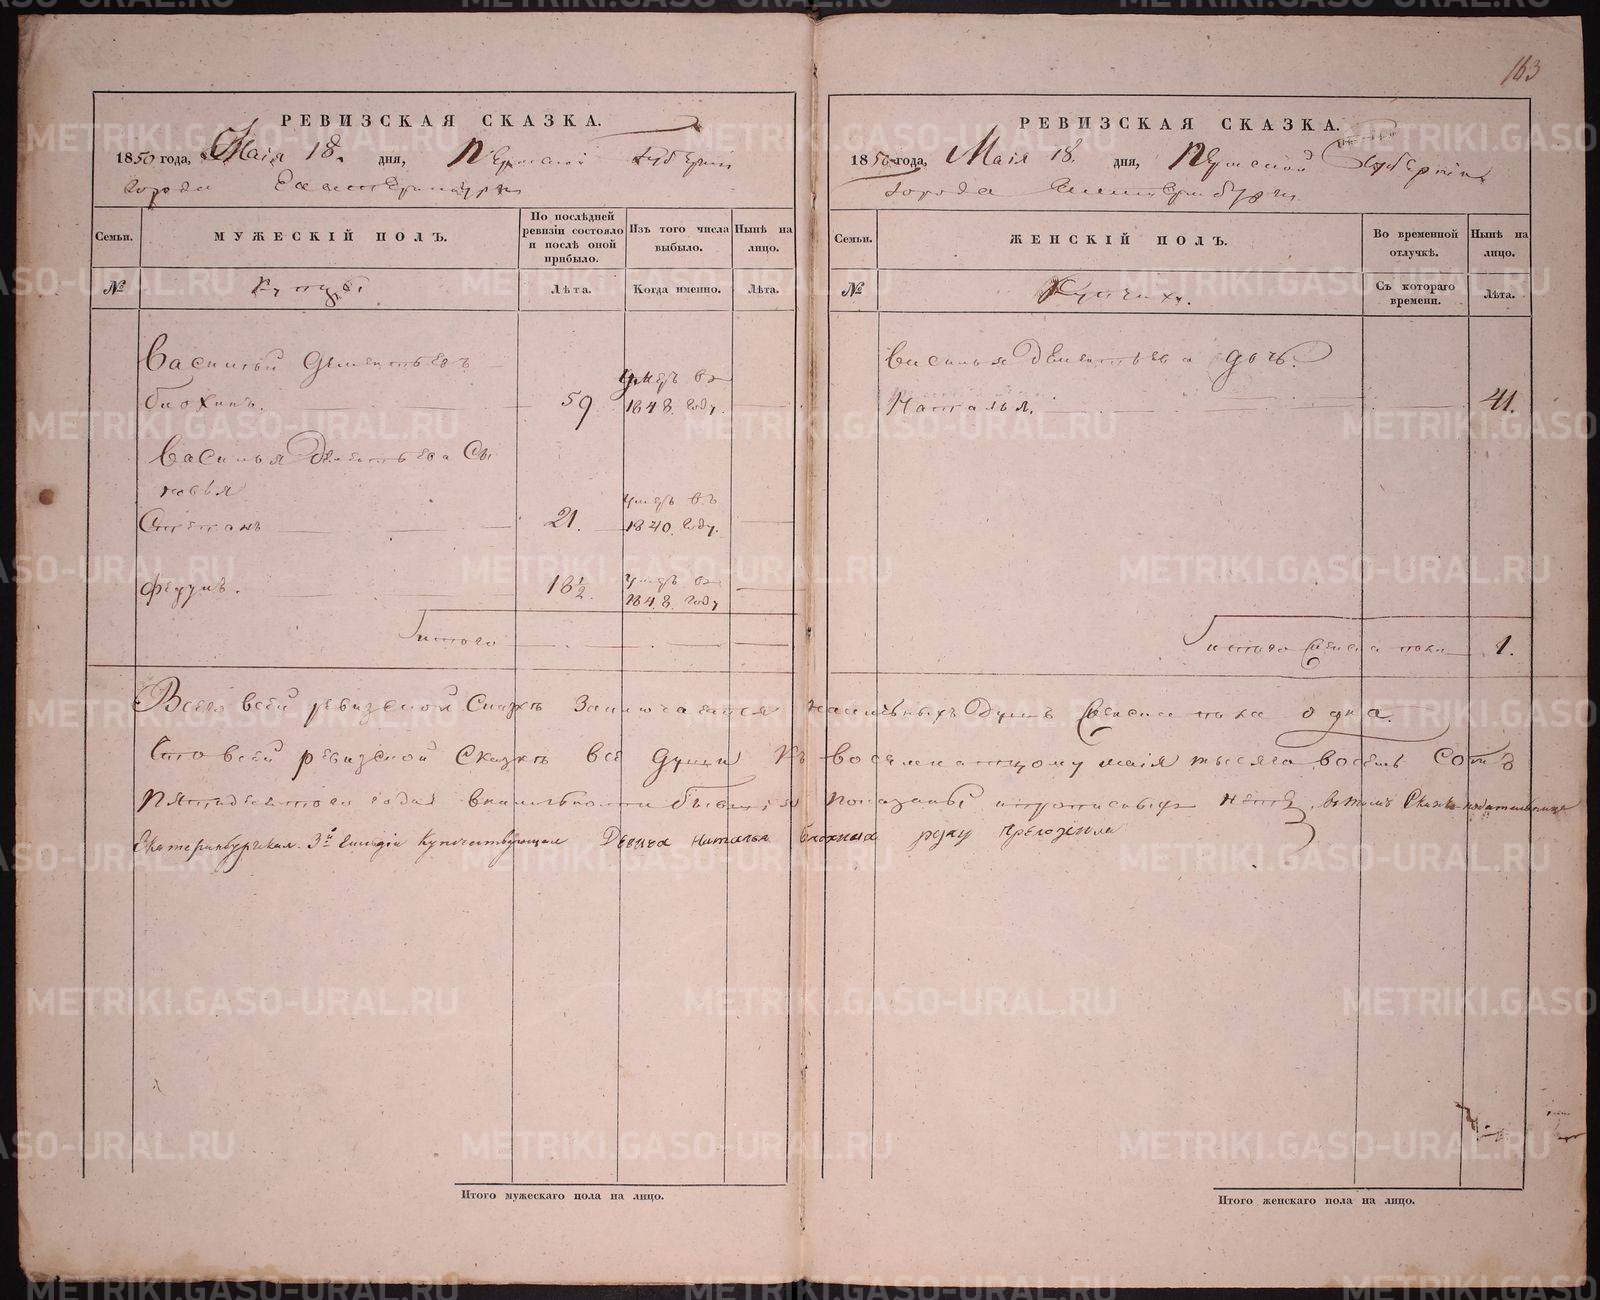 163
РЕВИЗСКАЯ СКАЗКА.
1850 года, Маія 18. дня, Пермской Губерніи
города Екатеринбурга
Семьи.
МУЖЕСКІЙ ПОЛЪ.
По послѣдней ревизіи состояло и послѣ оной прибыло.
Изъ того числа выбыло.
Нынѣ на лицо.
№
Купцы
Лѣта.
Когда именно.
Лѣта.
Василій Дементьевъ
Блохинъ.
59
умеръ въ
1848. году.
Василья Дементьева Сы
новья
Степанъ
21.
умеръ въ
1840. году.
Федоръ.
18½.
умеръ въ
1848. году
Итого
Итого мужескаго пола на лицо.
РЕВИЗСКАЯ СКАЗКА.
1850 года, Маія 18. дня, Пермской Губерніи
города Екатеринбурга
Семьи.
ЖЕНСКІЙ ПОЛЪ.
Во временной отлучкѣ.
Нынѣ на лицо.
№
Купчихи.
Съ котораго времени.
Лѣта.
Василья Дементьева дочь.
Наталья.
41.
Итого женска пола
1.
Всего в сей ревизской Сказкѣ Заключается наличныхъ Душъ женска пола одна.
Что в сей ревизской Сказкѣ все души къ восемнатцому маія тысяча восемь Сотъ
пятидесятого года в наличности бывшіе показаны и прописныхъ нетъ, въ томъ Сказкоподательница
Екатеринбургская 3й Гильдіи Купечествующая Девица Наталья Блохина руку приложила
Итого женскаго пола на лицо.
METRIKI.GASO-URAL.RU